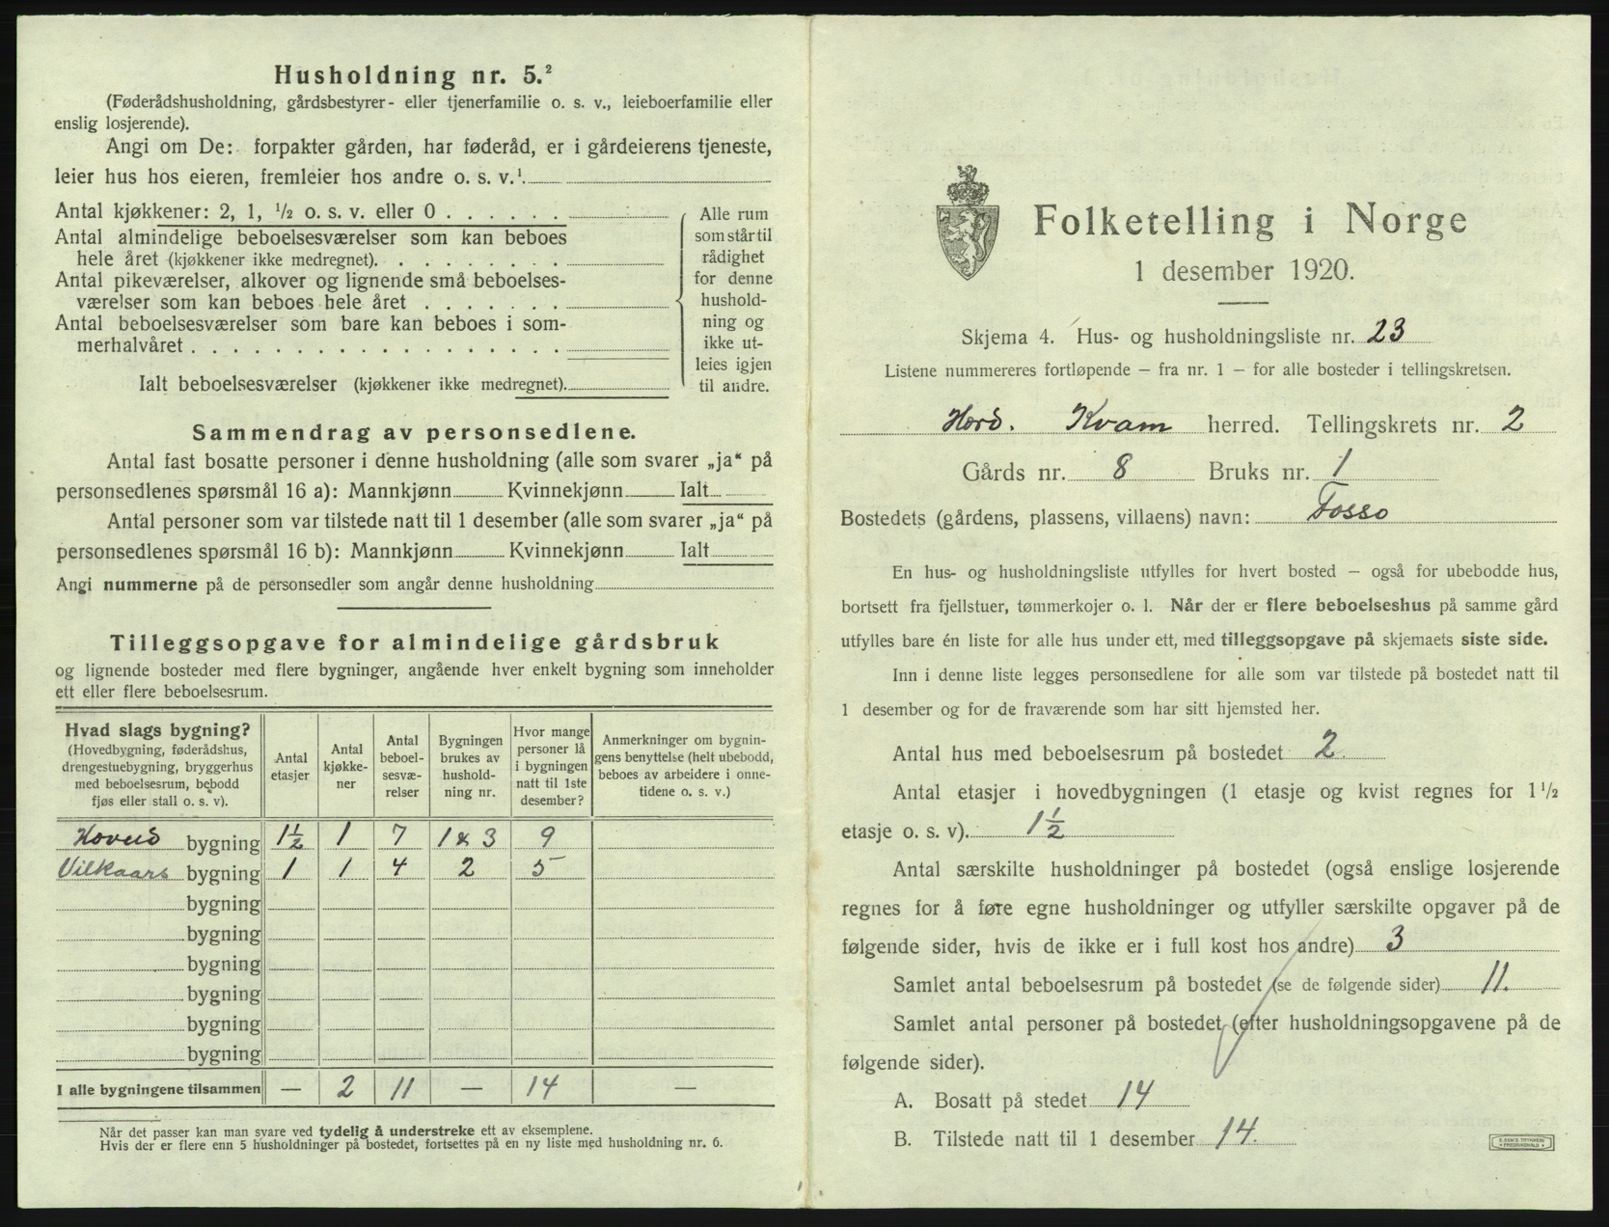 Husholdning nr. 5.²
(Føderådshusholdning, gårdsbestyrer- eller tjenerfamilie o. s. v., leieboerfamilie eller
enslig losjerende).
Angi om De: forpakter gården, har føderåd, er i gårdeierens tjeneste,
leier hus hos eieren, fremleier hos andre o. s. v.¹.
Antal kjøkkener: 2, 1, ½ o. s. v. eller 0 . . . . . .
Antal almindelige beboelsesværelser som kan beboes
hele året (kjøkkener ikke medregnet). . . . . . . . .
Antal pikeværelser, alkover og lignende små beboelses-
værelser som kan beboes hele året . . . . . . .
Antal beboelsesværelser som bare kan beboes i som-
merhalvåret . . . . . . . . . . . . . . . . . .
Ialt beboelsesværelser (kjøkkener ikke medregnet).
Alle rum
som står til
rådighet
for denne
hushold-
ning og
ikke ut-
leies igjen
til andre.
Sammendrag av personsedlene.
Antal fast bosatte personer i denne husholdning (alle som svarer „ja“ på
personsedlenes spørsmål 16 a): Mannkjønn Kvinnekjønn Ialt
Antal personer som var tilstede natt til 1 desember (alle som svarer „ja“ på
personsedlenes spørsmål 16 b): Mannkjønn Kvinnekjønn Ialt
Angi nummerne på de personsedler som angår denne husholdning
Tilleggsopgave for almindelige gårdsbruk
og lignende bosteder med flere bygninger, angående hver enkelt bygning som inneholder
ett eller flere beboelsesrum.
Hvad slags bygning?
(Hovedbygning, føderådshus,
drengestuebygning, bryggerhus
med beboelsesrum, bebodd
fjøs eller stall o. s. v).
Antal
etasjer
Antal
kjøkke-
ner
Antal
beboel-
sesvæ-
relser
Bygningen
brukes av
hushold-
ning nr.
Hvor mange
personer lå
i bygningen
natt til 1ste
desember?
Anmerkninger om bygnin-
gens benyttelse (helt ubebodd,
beboes av arbeidere i onne-
tidene o. s. v.)
Hoved bygning 1½ 1 7 1 & 3 9
Vilkaars bygning 1 1 4 2 5
bygning
bygning
bygning
bygning
bygning
bygning
I alle bygningene tilsammen — 2 11 — 14 —
Når det passer kan man svare ved tydelig å understreke ett av eksemplene.
Hvis der er flere enn 5 husholdninger på bostedet, fortsettes på en ny liste med husholdning nr. 6.
Folketelling i Norge
1 desember 1920.
Skjema 4. Hus- og husholdningsliste nr. 23
Listene nummereres fortløpende — fra nr. 1 — for alle bosteder i tellingskretsen.
Hord. Kvam herred. Tellingskrets nr. 2
Gårds nr. 8 Bruks nr. 1
Bostedets (gårdens, plassens, villaens) navn: Fosso
En hus- og husholdningsliste utfylles for hvert bosted — også for ubebodde hus,
bortsett fra fjellstuer, tømmerkojer o. l. Når der er flere beboelseshus på samme gård
utfylles bare én liste for alle hus under ett, med tilleggsopgave på skjemaets siste side.
Inn i denne liste legges personsedlene for alle som var tilstede på bostedet natt til
1 desember og for de fraværende som har sitt hjemsted her.
Antal hus med beboelsesrum på bostedet 2.
Antal etasjer i hovedbygningen (1 etasje og kvist regnes for 1½
etasje o. s. v). 1½
Antal særskilte husholdninger på bostedet (også enslige losjerende
regnes for å føre egne husholdninger og utfyller særskilte opgaver på de
følgende sider, hvis de ikke er i full kost hos andre) 3
Samlet antal beboelsesrum på bostedet (se de følgende sider) 11.
Samlet antal personer på bostedet (efter husholdningsopgavene på de
følgende sider).
A. Bosatt på stedet 14
B. Tilstede natt til 1 desember 14.